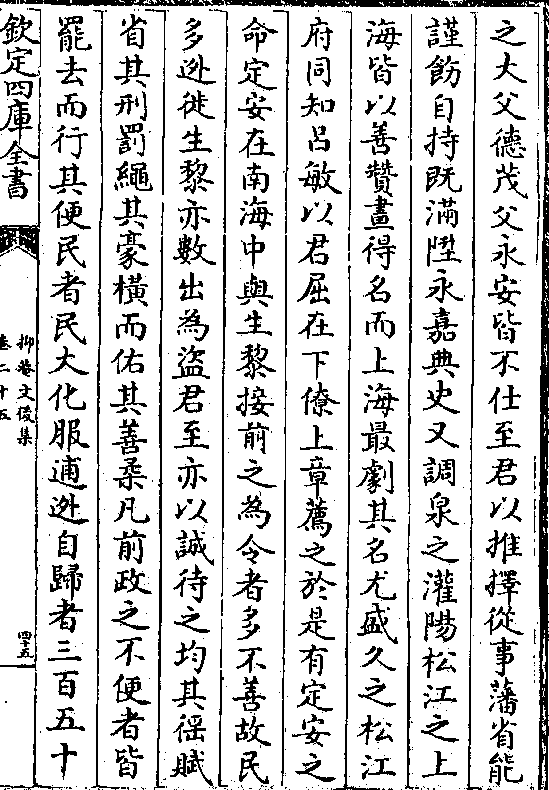 之大父德茂父永安皆不仕至君以推擇從事藩省能
謹飭自持既滿陞永嘉典史又調泉之灌陽松江之上
海皆以善贊畫得名而上海最劇其名尤盛久之松江
府同知呂敏以君屈在下僚上章薦之於是有定安之
命定安在南海中與生黎接前之為令者多不善故民
多迯徙生黎亦數出為盜君至亦以誠待之均其徭賦
省其刑罰繩其豪橫而佑其善柔凡前政之不便者皆
罷去而行其便民者民大化服逋迯自歸者三百五十
欽定四庫全書
抑菴文後集
卷二十五
四十五